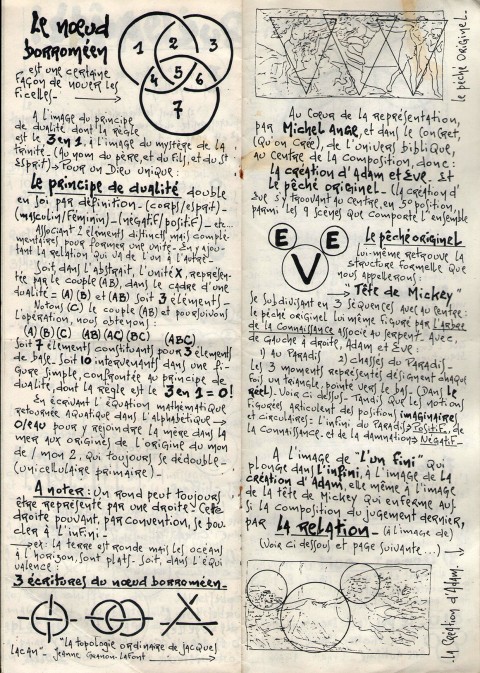 Le nœud
borroméen
est une certaine
façon de nouer les
ficelles_
1 2 3
4 5 6
7
A l'image du principe
de dualité dont la règle
est le 3 en 1, à l'image du mystère de la
trinité_ (Au nom du père, et du Fils, et du St
Esprit) → Pour un Dieu unique :
Le principe de dualité double
en soi par définition_ (corps/esprit)_
(masculin/féminin)_(négatif/positif)_ etc...
Associant 2 éléments distincts mais complé-
mentaires pour former une unité_ En y ajou-
tant la relation qui va de l'un à l'autre_
Soit, dans l'abstrait, l'unité X, représen-
tée par le couple (AB), dans le cadre d'une
dualité = (A) (B) et (AB) soit 3 éléments_
Notons (C) le couple (AB) et poursuivons
l'opération, nous obtenons :
(A) (B) (C) (AB) (AC) (BC) (ABC)
soit 7 éléments constituants pour 3 éléments
de base_ soit 10 intervenants dans une fi-
gure simple, confrontée au principe de
dualité, dont la règle est le 3 en 1 = 0!
En écrivant l'équation mathématique
retournée aquatique dans l'alphabétique →
O/eau pour y rejoindre la mère dans la
mer aux origines de l'origine du mon
de / mon 2, qui toujours se dédouble_
(unicellulaire primaire)_
A noter : Un rond peut toujours
être représenté par une droite_ Cette
droite pouvant, par convention, se bou-
cler à l'infini_
→ ex: la terre est ronde mais les océans
à l'horizon sont plats_ soit, dans l'équi
valence :
3 écritures du nœud borroméen_
"La topologie ordinaire de jacques
Lacan"_ Jeanne Granon-Lafont
le péché originel_
Au Cœur de la représentation,
par Michel Ange, et dans le concret,
(Qu'on Crée), de l'univers biblique,
au Centre de la composition, donc :
la création d'Adam et Eve_ Et
le péché originel_ (la création d'
Eve s'y trouvant au centre, en 5e position
parmi les 9 scènes que comporte l'ensemble
E E
V
Le péché originel
lui-même retrouve la
structure formelle que
nous appellerons :
→ "Tête de Mickey"
Se subdivisant en 3 séquences avec au centre :
le péché originel lui même figuré par l'Arbre
de la Connaissance associé au serpent_ Avec,
de gauche à droite, Adam et Eve :
1) Au Paradis 2) chassés du Paradis_
Les 3 moments représentés désignant chaque
fois un triangle, pointé vers le bas_ (dans le
réel)_ Voici ci-dessus_ Tandis que les notions
figurées articulent des positions imaginaires
et circulaires : l'infini du Paradis → Positif_ de
la connaissance_ et de la damnation → Négatif_
A l'image de "l'un fini" qui
plonge dans l'infini, à l'image de la
création d'Adam, elle même à l'image
de la tête de Mickey qui enferme aus
si la composition du jugement dernier,
par la relation_ (à l'image de)
(Voir ci dessous et page suivante...)
la Création d'Adam_